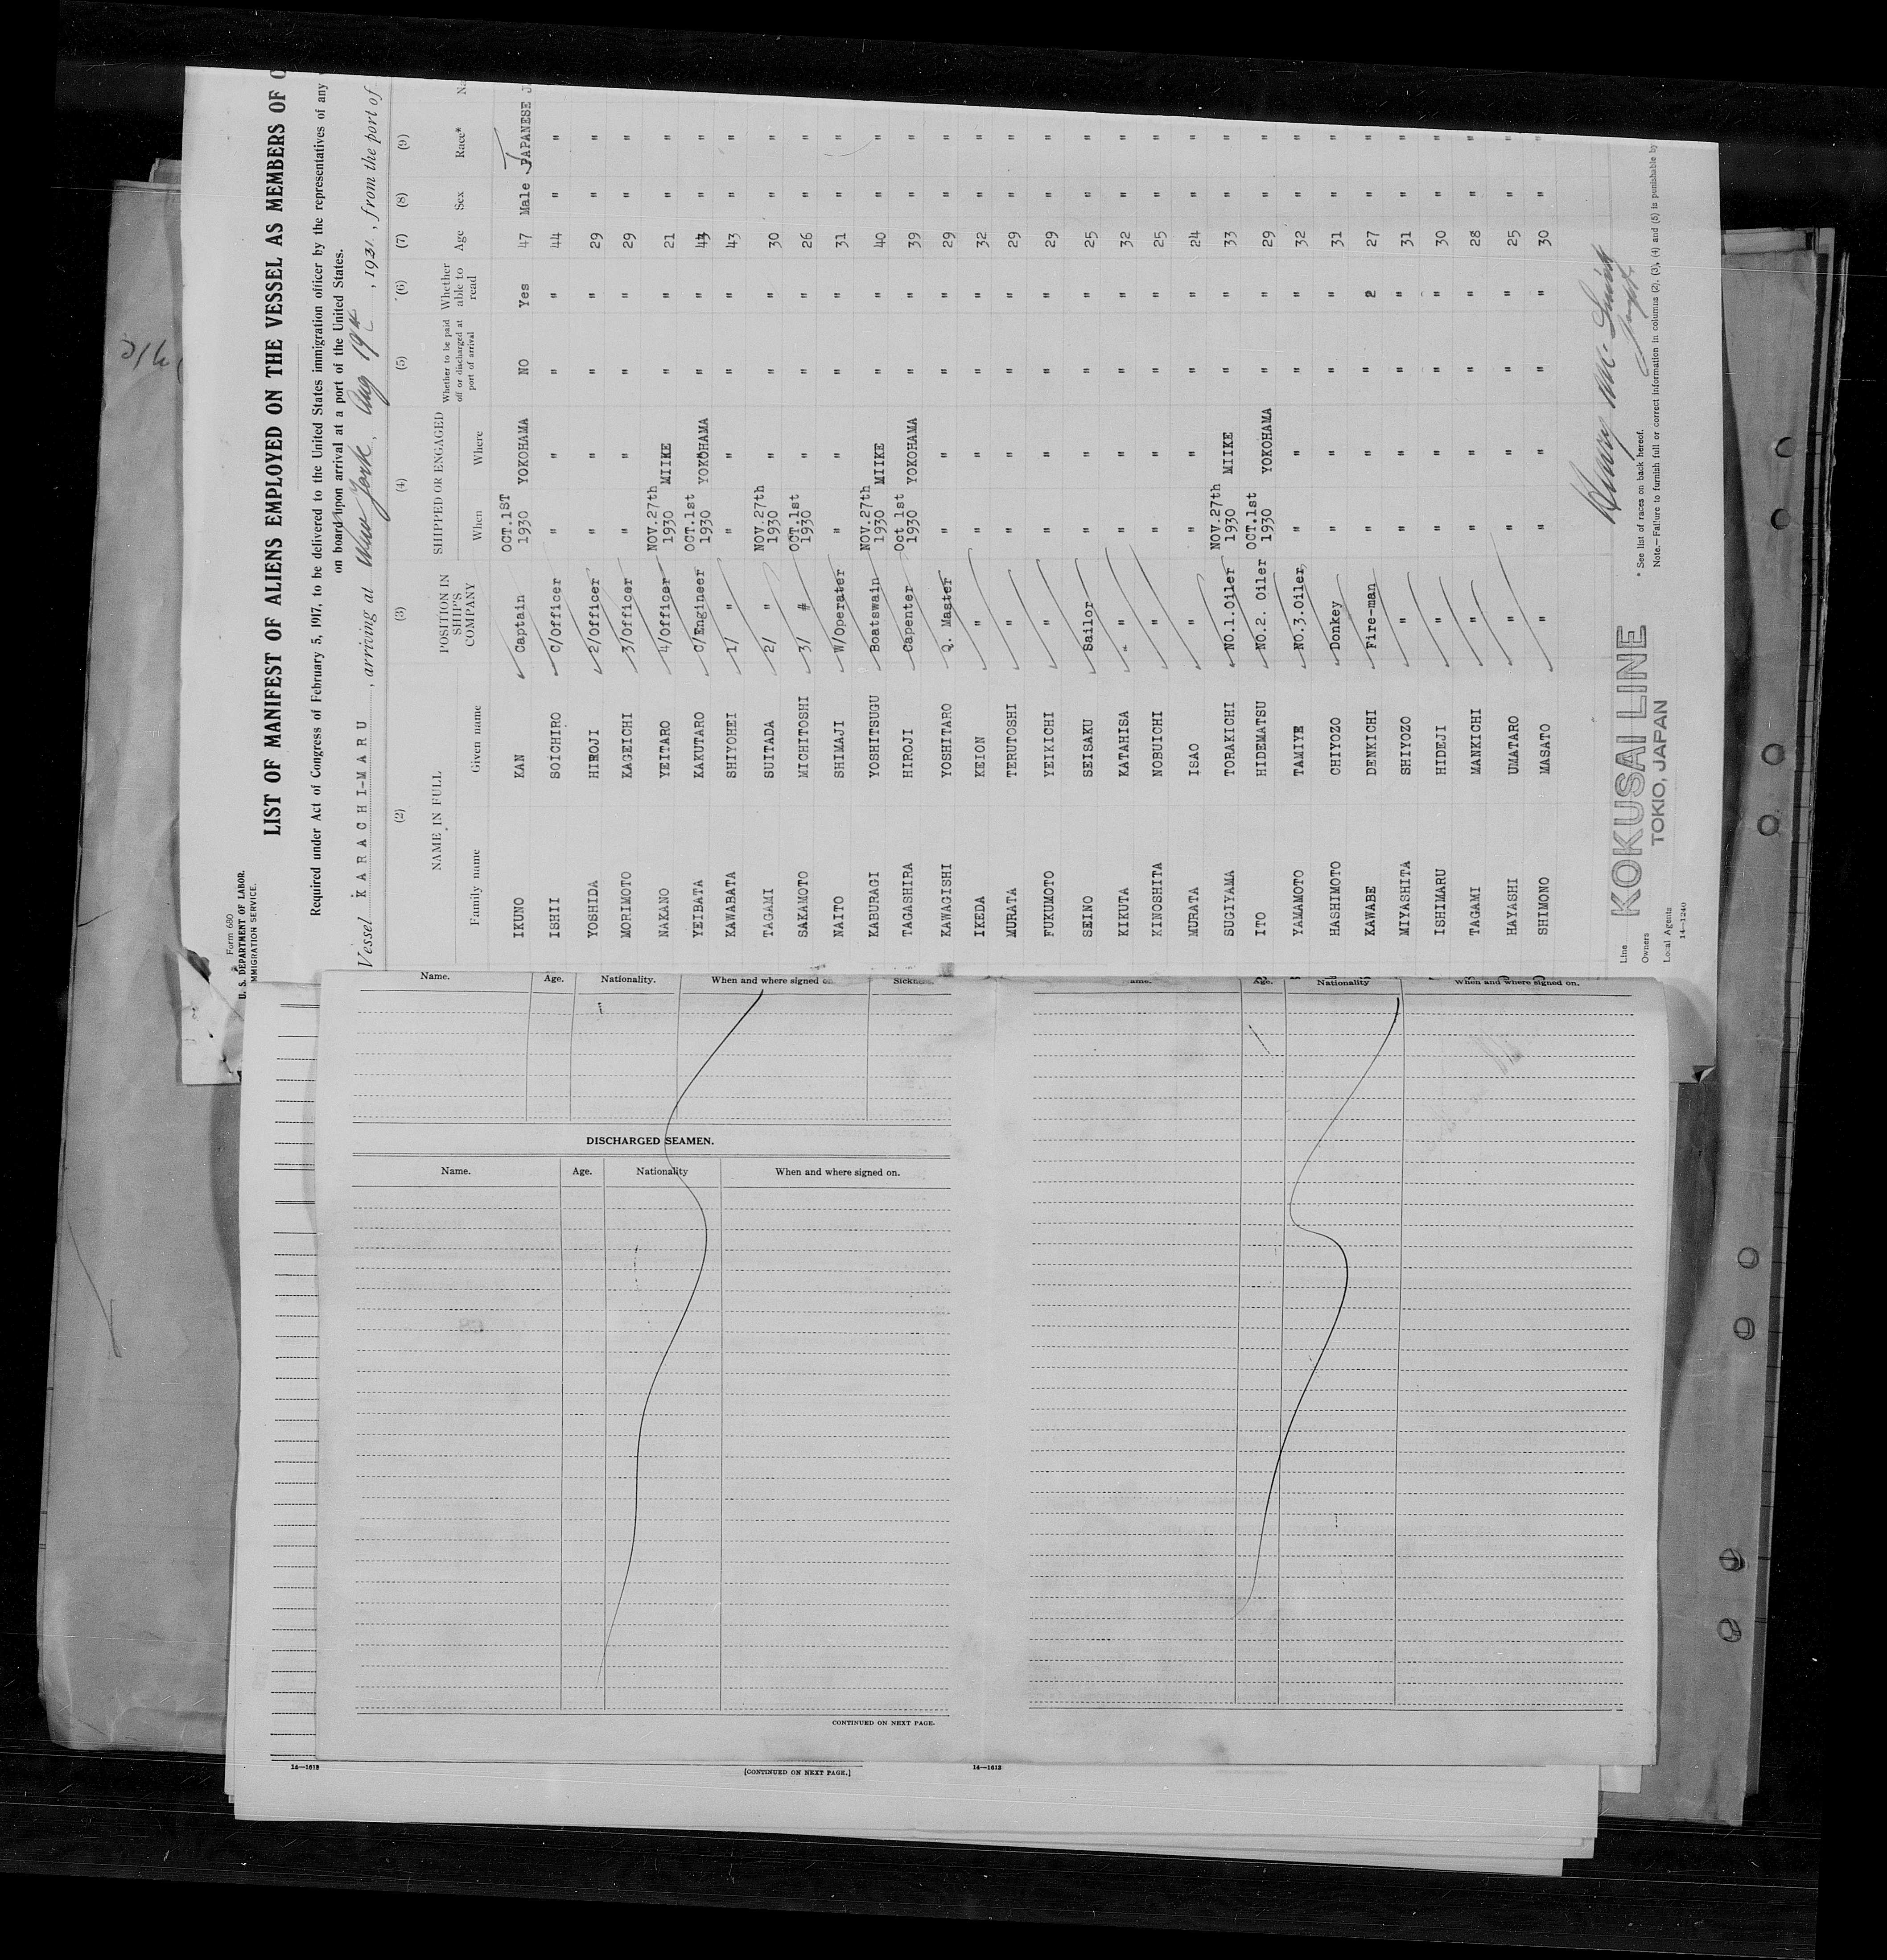 Form 680
U. S. DEPARTMENT OF LABOR.
IMMIGRATION SERVICE.
LIST OF MANIFEST OF ALIENS EMPLOYED ON THE VESSEL AS MEMBERS OF
Required under Act of Congress of February 5, 1917, to be delivered to the United States immigration officer by the representatives of any
on board upon arrival at a port of the United States.
Vessel KARACHI-MARU, arriving at New York, Aug 19th, 1931, from the port of
(2) (3) (4) (5) (6) (7) (8) (9)
NAME IN FULL POSITION IN SHIP'S COMPANY SHIPPED OR ENGAGED Whether to be paid off or discharged at port of arrival Whether able to read Age Sex Race*
Family name Given name When Where
IKUNO KAN Captain OCT.1ST 1930 YOKOHAMA NO Yes 47 Male JAPANESE
ISHII SOICHIRO C/Officer " " " " 44 " "
YOSHIDA HIROJI 2/Officer " " " " 29 " "
MORIMOTO KAGEICHI 3/Officer " " " " 29 " "
NAKANO YEITARO 4/Officer NOV.27th 1930 MIIKE " " 21 " "
YEIBATA KAKUTARO C/Engineer OCT.1st 1930 YOKOHAMA " " " "
KAWABATA SHIYOHEI 1/ " " " " " 43 " "
TAGAMI SUITADA 2/ " NOV.27th 1930 " " " 30 " "
SAKAMOTO MICHITOSHI 3/ # OCT.1st 1930 " " " 26 " "
NAITO SHIMAJI W/Operater " " " " 31 " "
KABURAGI YOSHITSUGU Boatswain NOV.27th 1930 MIIKE " " 40 " "
TAGASHIRA HIROJI Capenter Oct 1st 1930 YOKOHAMA " " 39 " "
KAWAGISHI YOSHITARO Q. Master " " " " 29 " "
IKEDA KEION " " " " " 32 " "
MURATA TERUTOSHI " " " " " 29 " "
FUKUMOTO YEIKICHI " " " " " 29 " "
SEINO SEISAKU Sailor " " " " 25 " "
KIKUTA KATAHISA " " " " " 32 " "
KINOSHITA NOBUICHI " " " " " 25 " "
MURATA ISAO " " " " " 24 " "
SUGIYAMA TORAKICHI NO.1.Oiler NOV.27th 1930 MIIKE " " 33 " "
ITO HIDEMATSU NO.2. Oiler OCT.1st 1930 YOKOHAMA " " 29 " "
YAMAMOTO TAMIYE NO.3.Oiler " " " " 32 " "
HASHIMOTO CHIYOZO Donkey " " " " 31 " "
KAWABE DENKICHI Fire-man " " " 2 27 " "
MIYASHITA SHIYOZO " " " " " 31 " "
ISHIMARU HIDEJI " " " " " 30 " "
TAGAMI MANKICHI " " " " " 28 " "
HAYASHI UMATARO " " " " " 25 " "
SHIMONO MASATO " " " " " 30 " "
Line KOKUSAI LINE
Owners TOKIO, JAPAN
Local Agents
14—1240
* See list of races on back hereof.
Note.—Failure to furnish full or correct information in columns (2), (3), (4) and (5) is punishable by
Name. Age. Nationality. When and where signed Sickness
DISCHARGED SEAMEN.
Name. Age. Nationality When and where signed on.
CONTINUED ON NEXT PAGE.
Age. Nationality When and where signed on.
14—1613
[CONTINUED ON NEXT PAGE.]
14—1613